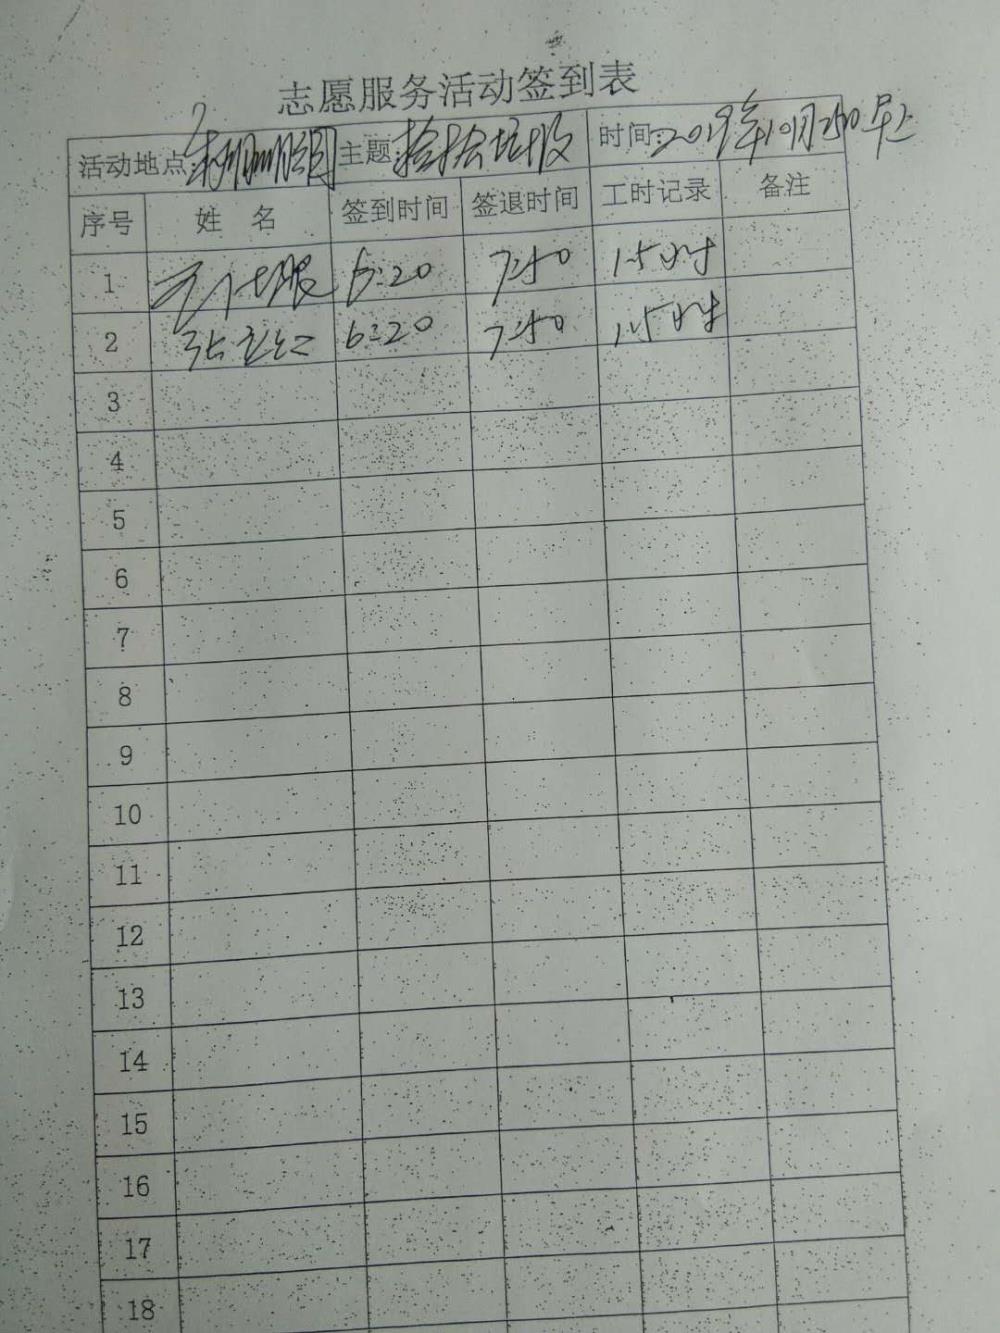 志愿服务活动签到表
活动地点: 主题:捡拾垃圾 时间:2019年10月25日早上
序号 姓 名 签到时间 签退时间 工时记录 备注
1 6:20 7:50 1.5小时
2 张立红 6:20 7:50 1.5小时
3
4
5
6
7
8
9
10
11
12
13
14
15
16
17
18